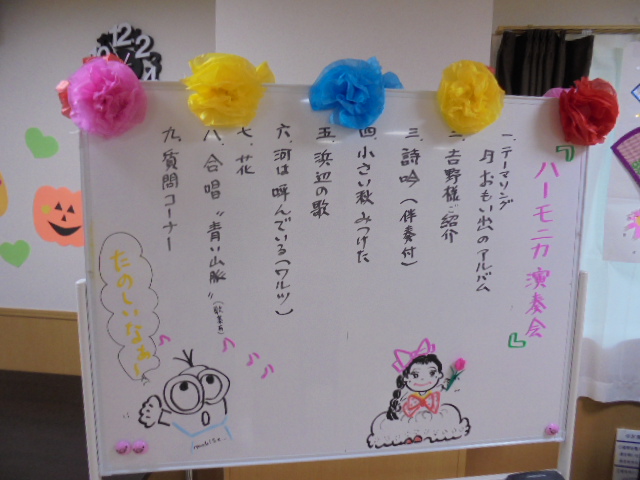 『ハーモニカ演奏会』
一、テーマソング
月おもい出のアルバム
二、吉野様ご紹介
三、詩吟（伴奏付）
四、小さい秋みつけた
五、浜辺の歌
六、河は呼んでいる（ワルツ）
七、花
八、合唱〝青い山脈〟
九、質問コーナー
たのしいなぁー
12